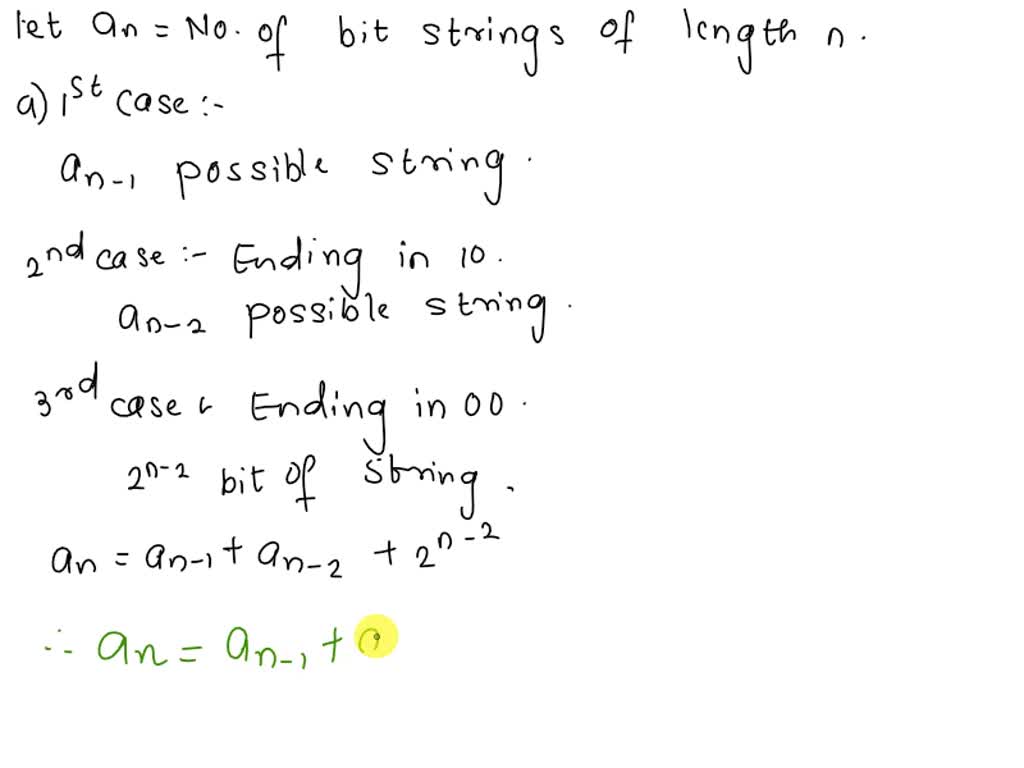 let an = No. of bit strings of length n.
a) 1st case :-
an-1 possible string.
2nd case :- Ending in 10.
an-2 possible string.
3rd case Ending in 00.
2^n-2 bit of string.
an = an-1 + an-2 + 2^n-2
∴ an = an-1 +